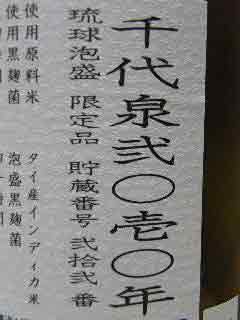 千代泉弐〇壱〇年
琉球泡盛 限定品 貯蔵番号 弐拾弐番
使用原料米 タイ産インディカ米
使用黒麹菌 泡盛黒麹菌